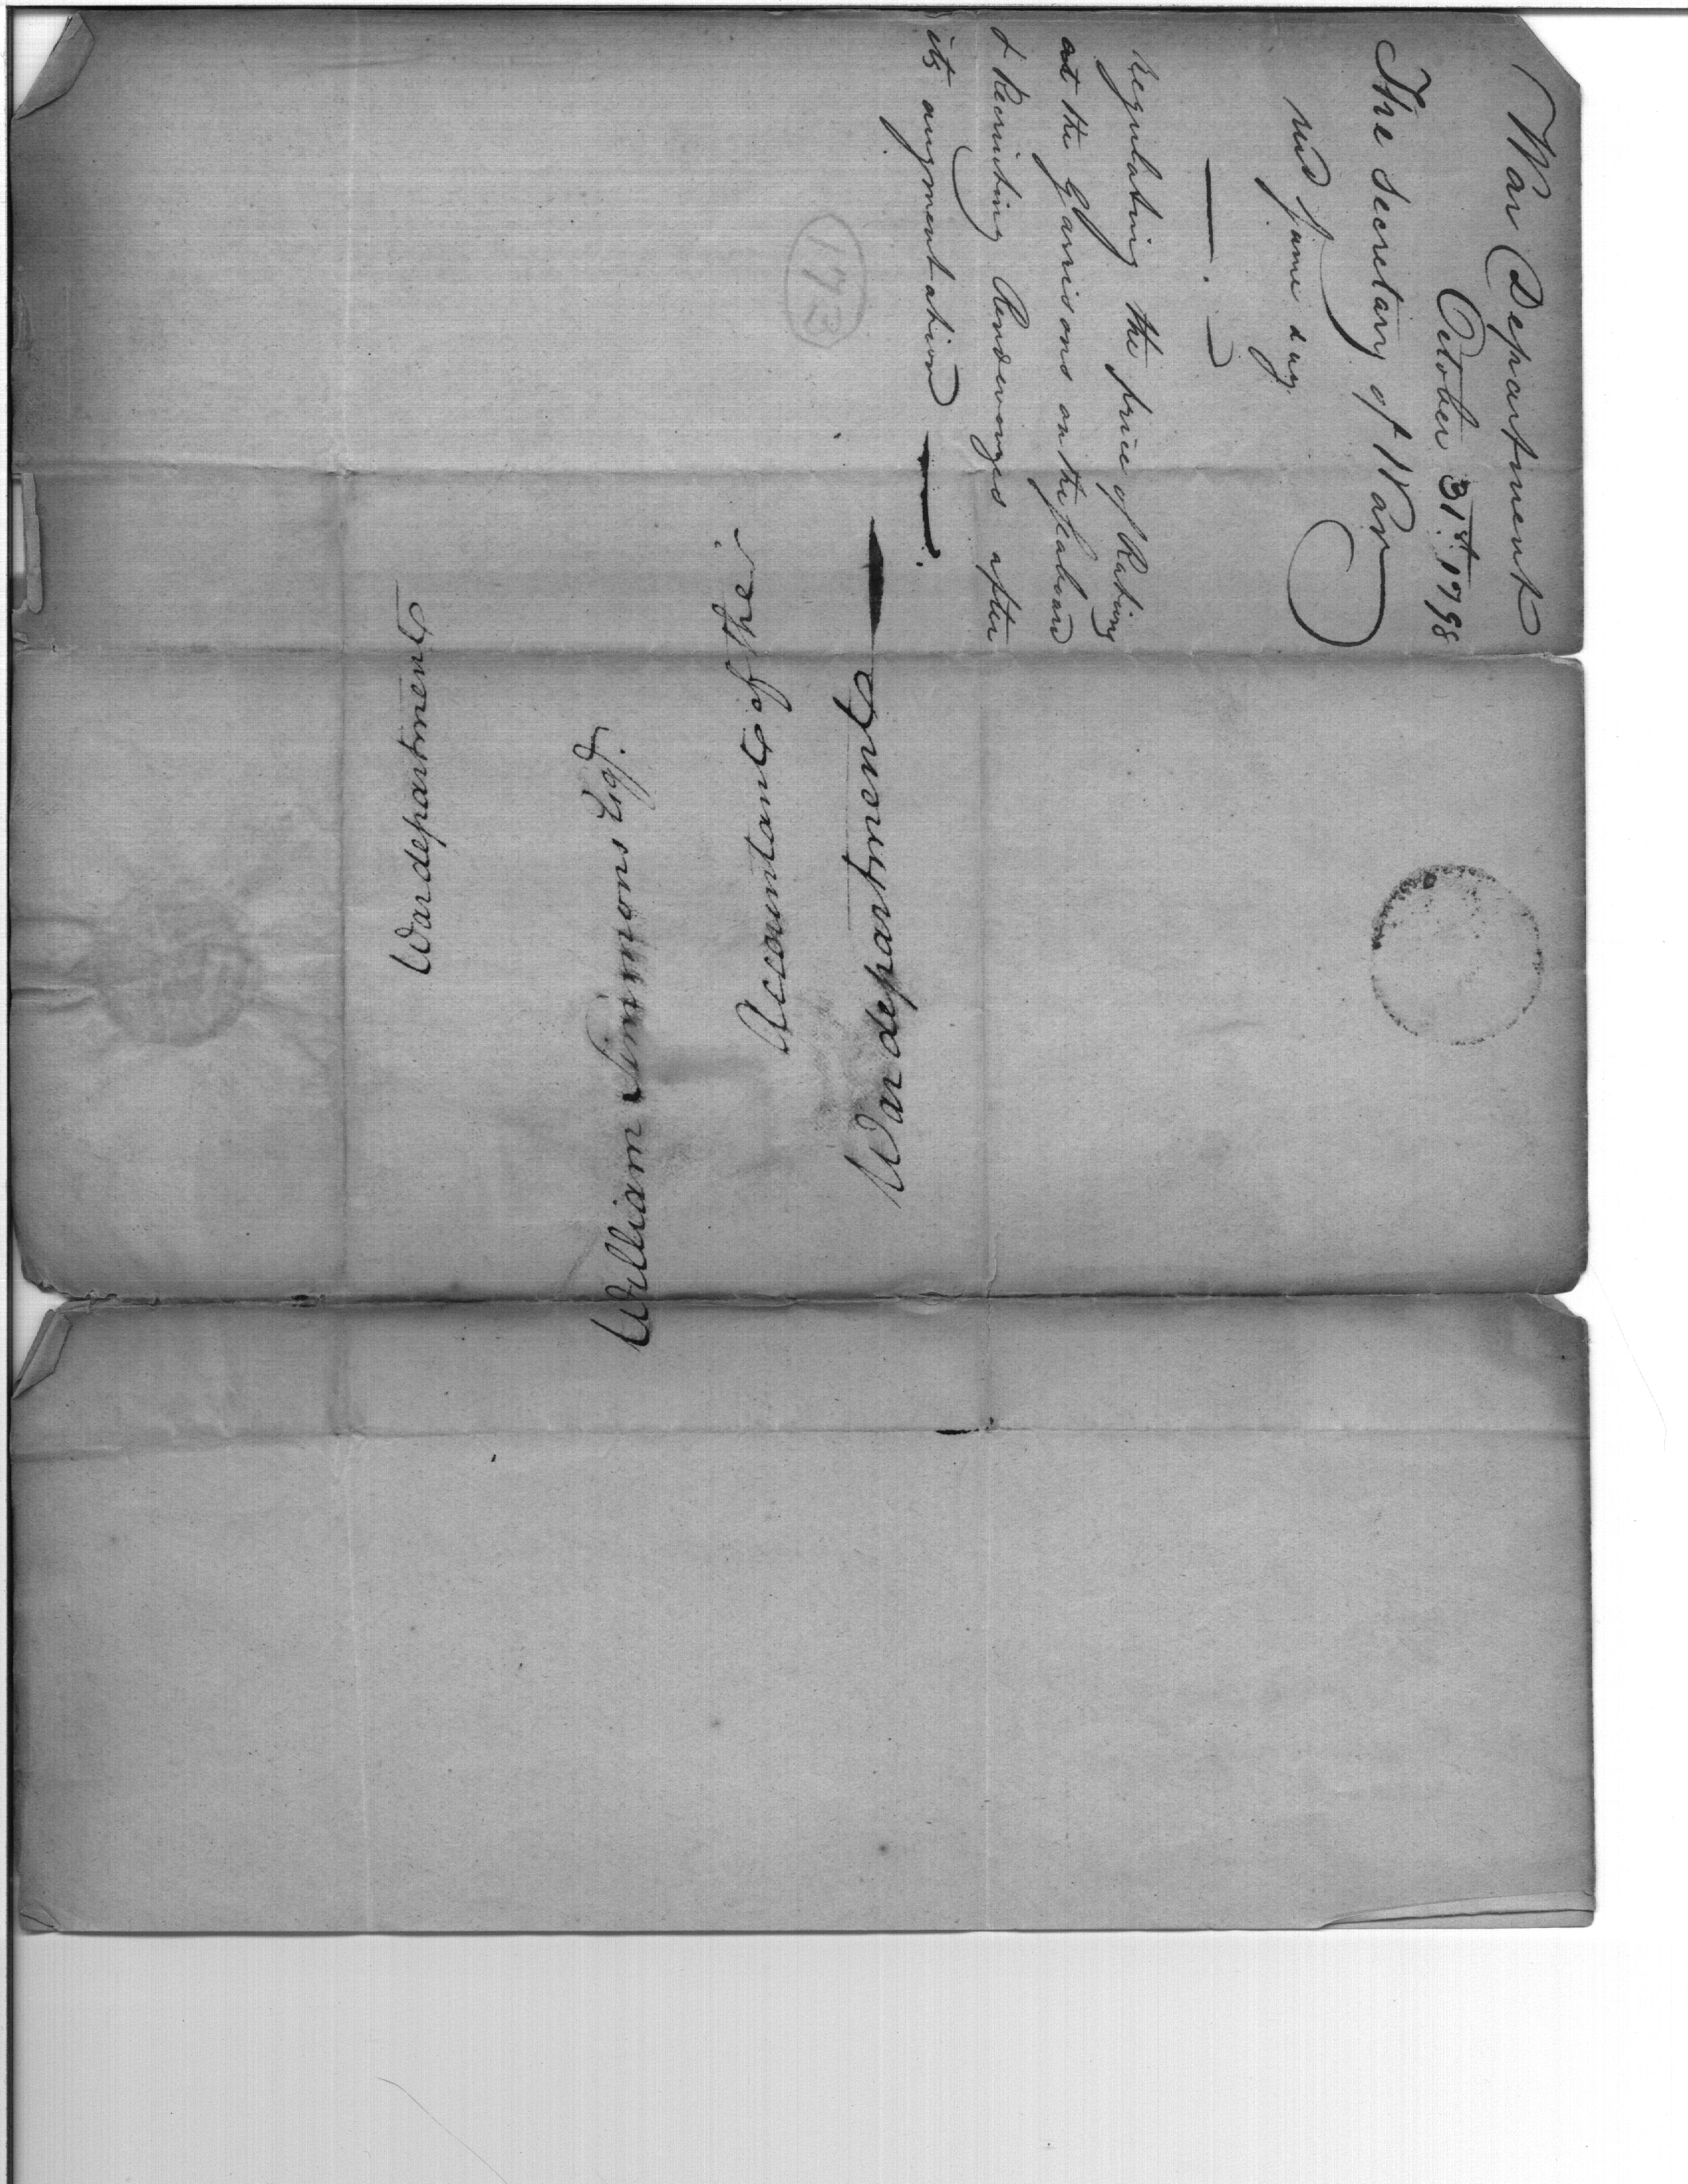 War Department
October 31st. 1798
The Secretary of War
recd same day
regulating the price of Rations
at the Garrisons on the seaboard
& Recruiting Rendevouzes after
its augmentation
173
War department
William Simmons Esq.
Accountant of the
War department